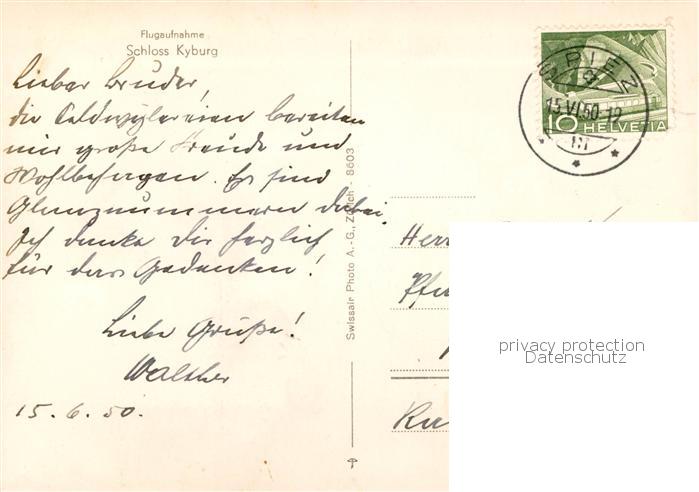 Flugaufnahme
Schloss Kyburg
Lieber Bruder,
die Seldwylereien bereiten
mir große Freude und
Wohlbehagen. Es sind
Glanznummern dabei.
Ich danke Dir herzlich
für das Gedenken!
Liebe Grüße!
Walther
15. 6. 50.
Swissair Photo A.-G., Zürich - 8603
15.VI.50-12
10 HELVETIA
Herr
privacy protection
Datenschutz